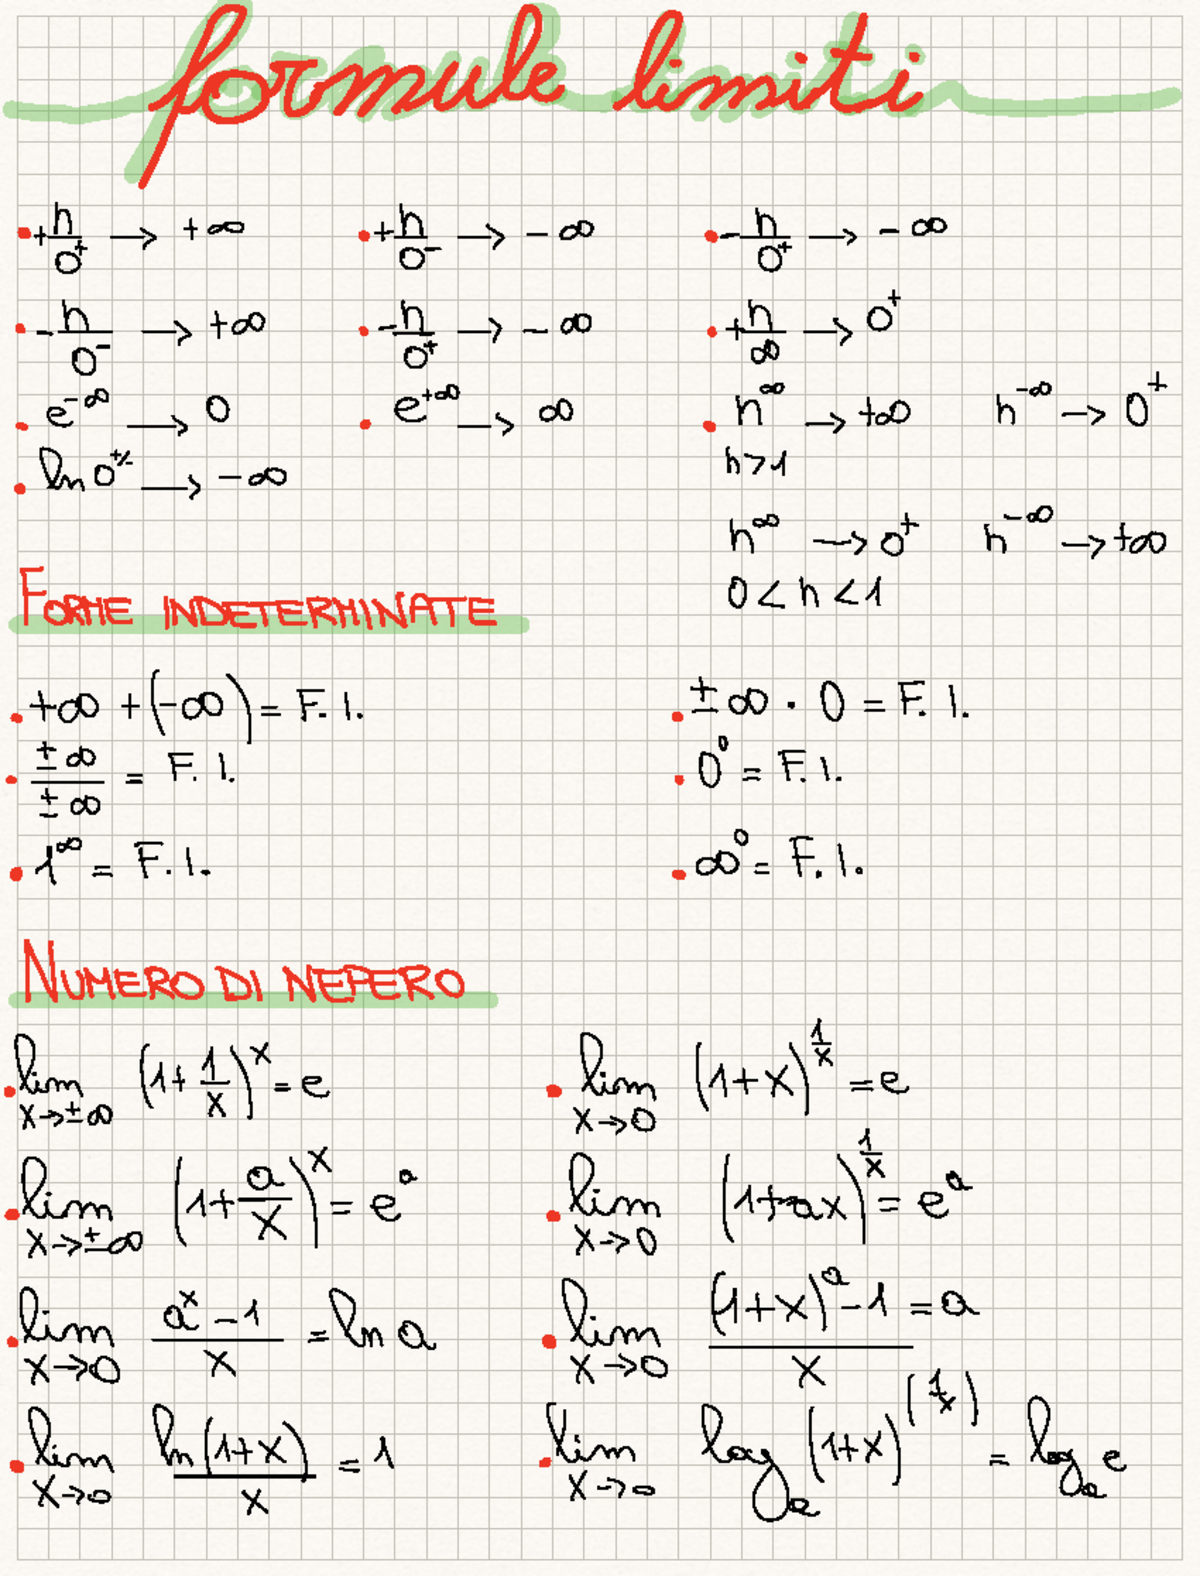 formule limiti
+n/0⁺ → +∞   +n/0⁻ → -∞   -n/0⁺ → -∞
-n/0⁻ → +∞   -n/0⁺ → -∞   +n/∞ → 0⁺
e^-∞ → 0   e^+∞ → ∞   n^∞ → +∞   n^-∞ → 0⁺
ln 0^+/- → -∞   n>1
n^∞ → 0⁺   n^-∞ → +∞
0<n<1
FORME INDETERMINATE
+∞ +(-∞) = F.I.   ±∞ · 0 = F.I.
±∞/±∞ = F.I.   0⁰ = F.I.
1^∞ = F.I.   ∞⁰ = F.I.
NUMERO DI NEPERO
lim x→±∞ (1+1/x)^x = e   lim x→0 (1+x)^1/x = e
lim x→±∞ (1+a/x)^x = e^a   lim x→0 (1+ax)^1/x = e^a
lim x→0 a^x-1/x = ln a   lim x→0 (1+x)^a-1/x = a
lim x→0 ln(1+x)/x = 1   lim x→0 log_a (1+x)^(1/x) = log_a e